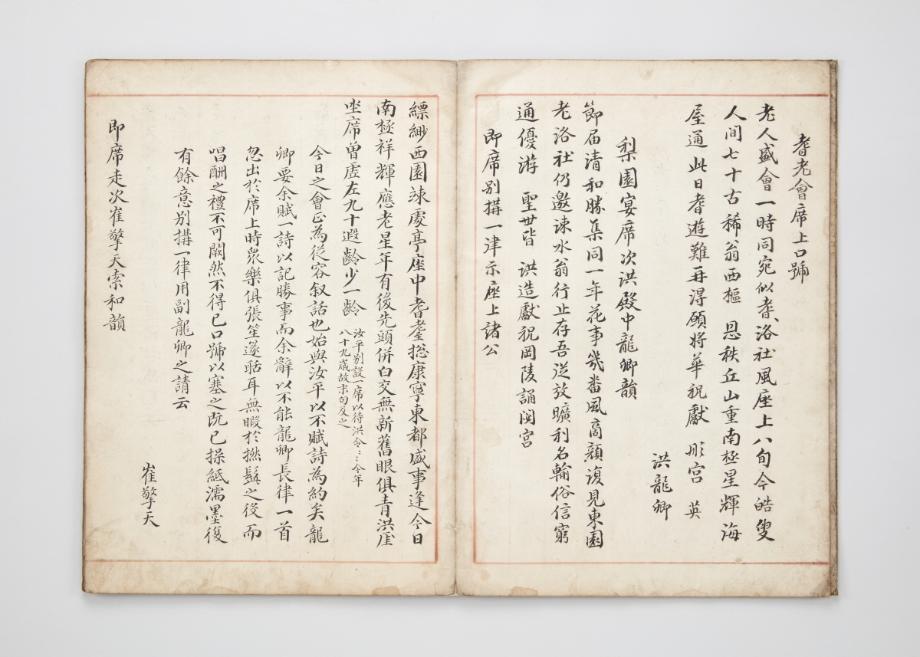 耆老會席上口號
老人盛會一時同宛似耆洛社風座上八旬今皓叟
人間七十古稀翁西樞 恩秩丘山重南極星輝海
屋通此日耆遊難再得願將華祝獻 彤宮 英
洪龍卿
梨園宴席次洪殿中龍卿韻
節届清和勝集同一年花事幾番風商顏復見東園
老洛社仍邀涑水翁行止存吾從放曠利名輸俗信窮
通優游 聖世皆 洪造獻祝岡陵誦閟宮
即席別搆一律示座上諸公
縹緲西園竦處亭座中耆耋摠康寧東都盛事逢今日
南極祥輝應老星年有後先頭併白交無新舊眼俱青洪崖
坐席曾虛左九十遐齡少一齡
汝平別設一席以待洪令〻〻今年
八十九歲故末句及之
今日之會正為從容叙話也始與汝平以不賦詩為約矣龍
卿要余賦一詩以記勝事而余辭以不能龍卿長律一首
忽出於席上時衆樂俱張笙篴聒耳無暇於撚鬚之後而
唱酬之禮不可闕然不得已口號以塞之既已操紙濡墨後
有餘意別搆一律用副龍卿之請云
崔擎天
即席走次崔擎天索和韻